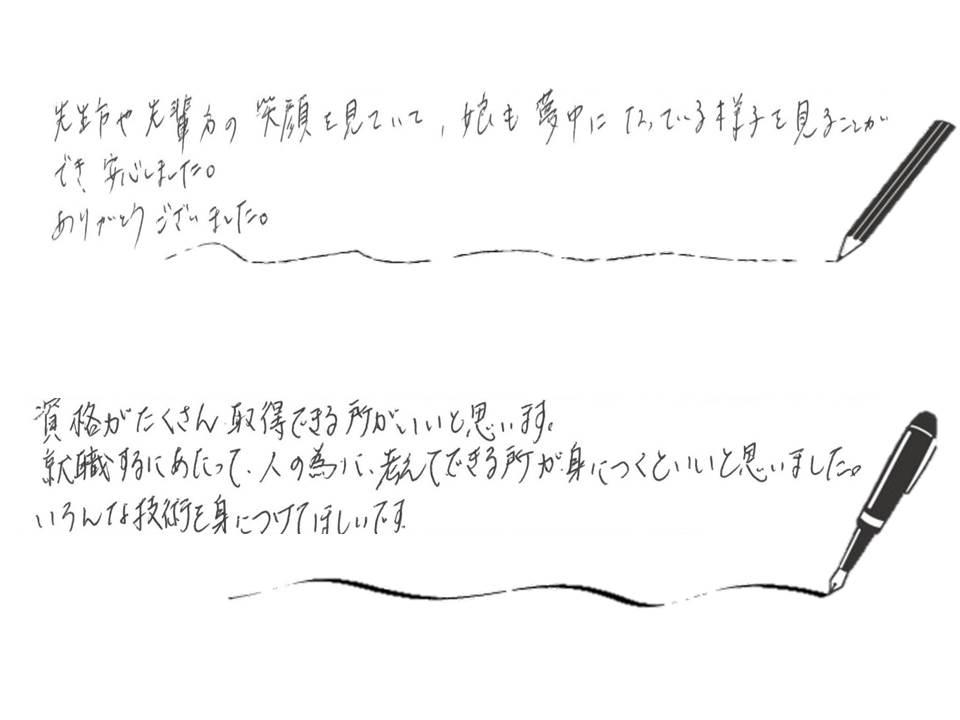 先生方や先輩方の笑顔を見ていて、娘も夢中になっている様子を見ることが
でき、安心しました。
ありがとうございました。
資格がたくさん取得できる所がいいと思います。
就職するにあたって、人の為に、考えてできる所が身につくといいと思いました。
いろんな技術を身につけてほしいです。